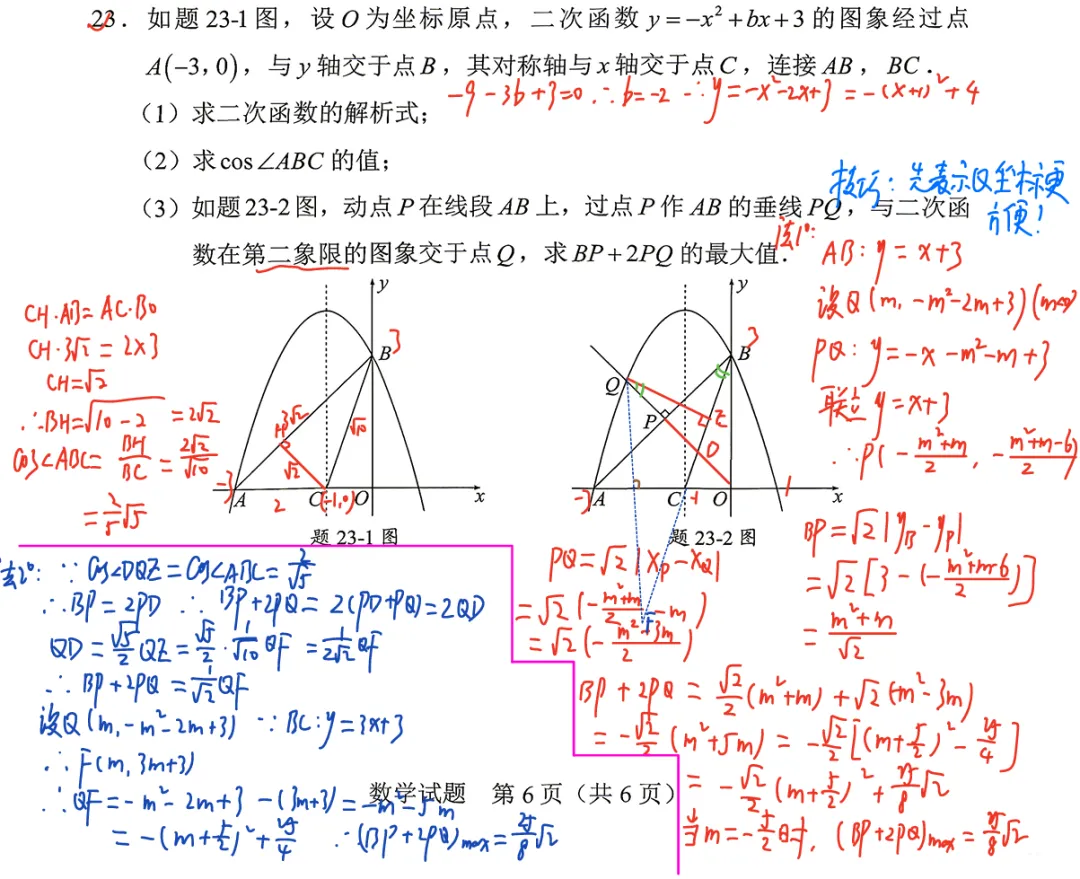 23. 如题 23-1 图，设 O 为坐标原点，二次函数 y=-x²+bx+3 的图象经过点
A(-3,0)，与 y 轴交于点 B，其对称轴与 x 轴交于点 C，连接 AB，BC.
-9-3b+3=0 ∴b=-2 ∴y=-x²-2x+3=-(x+1)²+4
（1）求二次函数的解析式；
（2）求 cos∠ABC 的值；
技巧：先表示Q坐标更
方便！
（3）如题 23-2 图，动点 P 在线段 AB 上，过点 P 作 AB 的垂线 PQ，与二次函
数在第二象限的图象交于点 Q，求 BP+2PQ 的最大值.
CH·AB=AC·BO
CH·3√2=2×3
CH=√2
∴BH=√(10-2)=2√2
cos∠ABC=BH/BC=2√2/√10
=2/5√5
y
B 3
3√2
H
√10
√2
-3 A 2 C(-1,0) O x
题 23-1 图
y
B 3
Q
P
Z
D
-3 A C -1 O 1 x
F
题 23-2 图
法1°：
AB：y=x+3
设Q(m,-m²-2m+3)(m<0)
PQ：y=-x-m²-m+3
联立y=x+3
∴P(-(m²+m)/2, -(m²+m-6)/2)
BP=√2|y_B-y_P|
=√2[3-(-(m²+m-6)/2)]
=(m²+m)/√2
PQ=√2|x_P-x_Q|
=√2(-(m²+m)/2-m)
=√2(-(m²+3m)/2)
BP+2PQ=√2/2(m²+m)+√2(-m²-3m)
=-√2/2(m²+5m)=-√2/2[(m+5/2)²-25/4]
=-√2/2(m+5/2)²+25/8√2
当m=-5/2时，(BP+2PQ)max=25/8√2
法2°：∵cos∠DQZ=cos∠ABC=2/√5
∴BP=2PD ∴BP+2PQ=2(PD+PQ)=2QD
QD=√5/2QZ=√5/2·1/√10QF=1/2√2QF
∴BP+2PQ=1/√2QF
设Q(m,-m²-2m+3) ∵BC：y=3x+3
∴F(m,3m+3)
∴QF=-m²-2m+3-(3m+3)=-m²-5m
=-(m+5/2)²+25/4 ∴(BP+2PQ)max=25/8√2
数学试题 第 6 页（共 6 页）